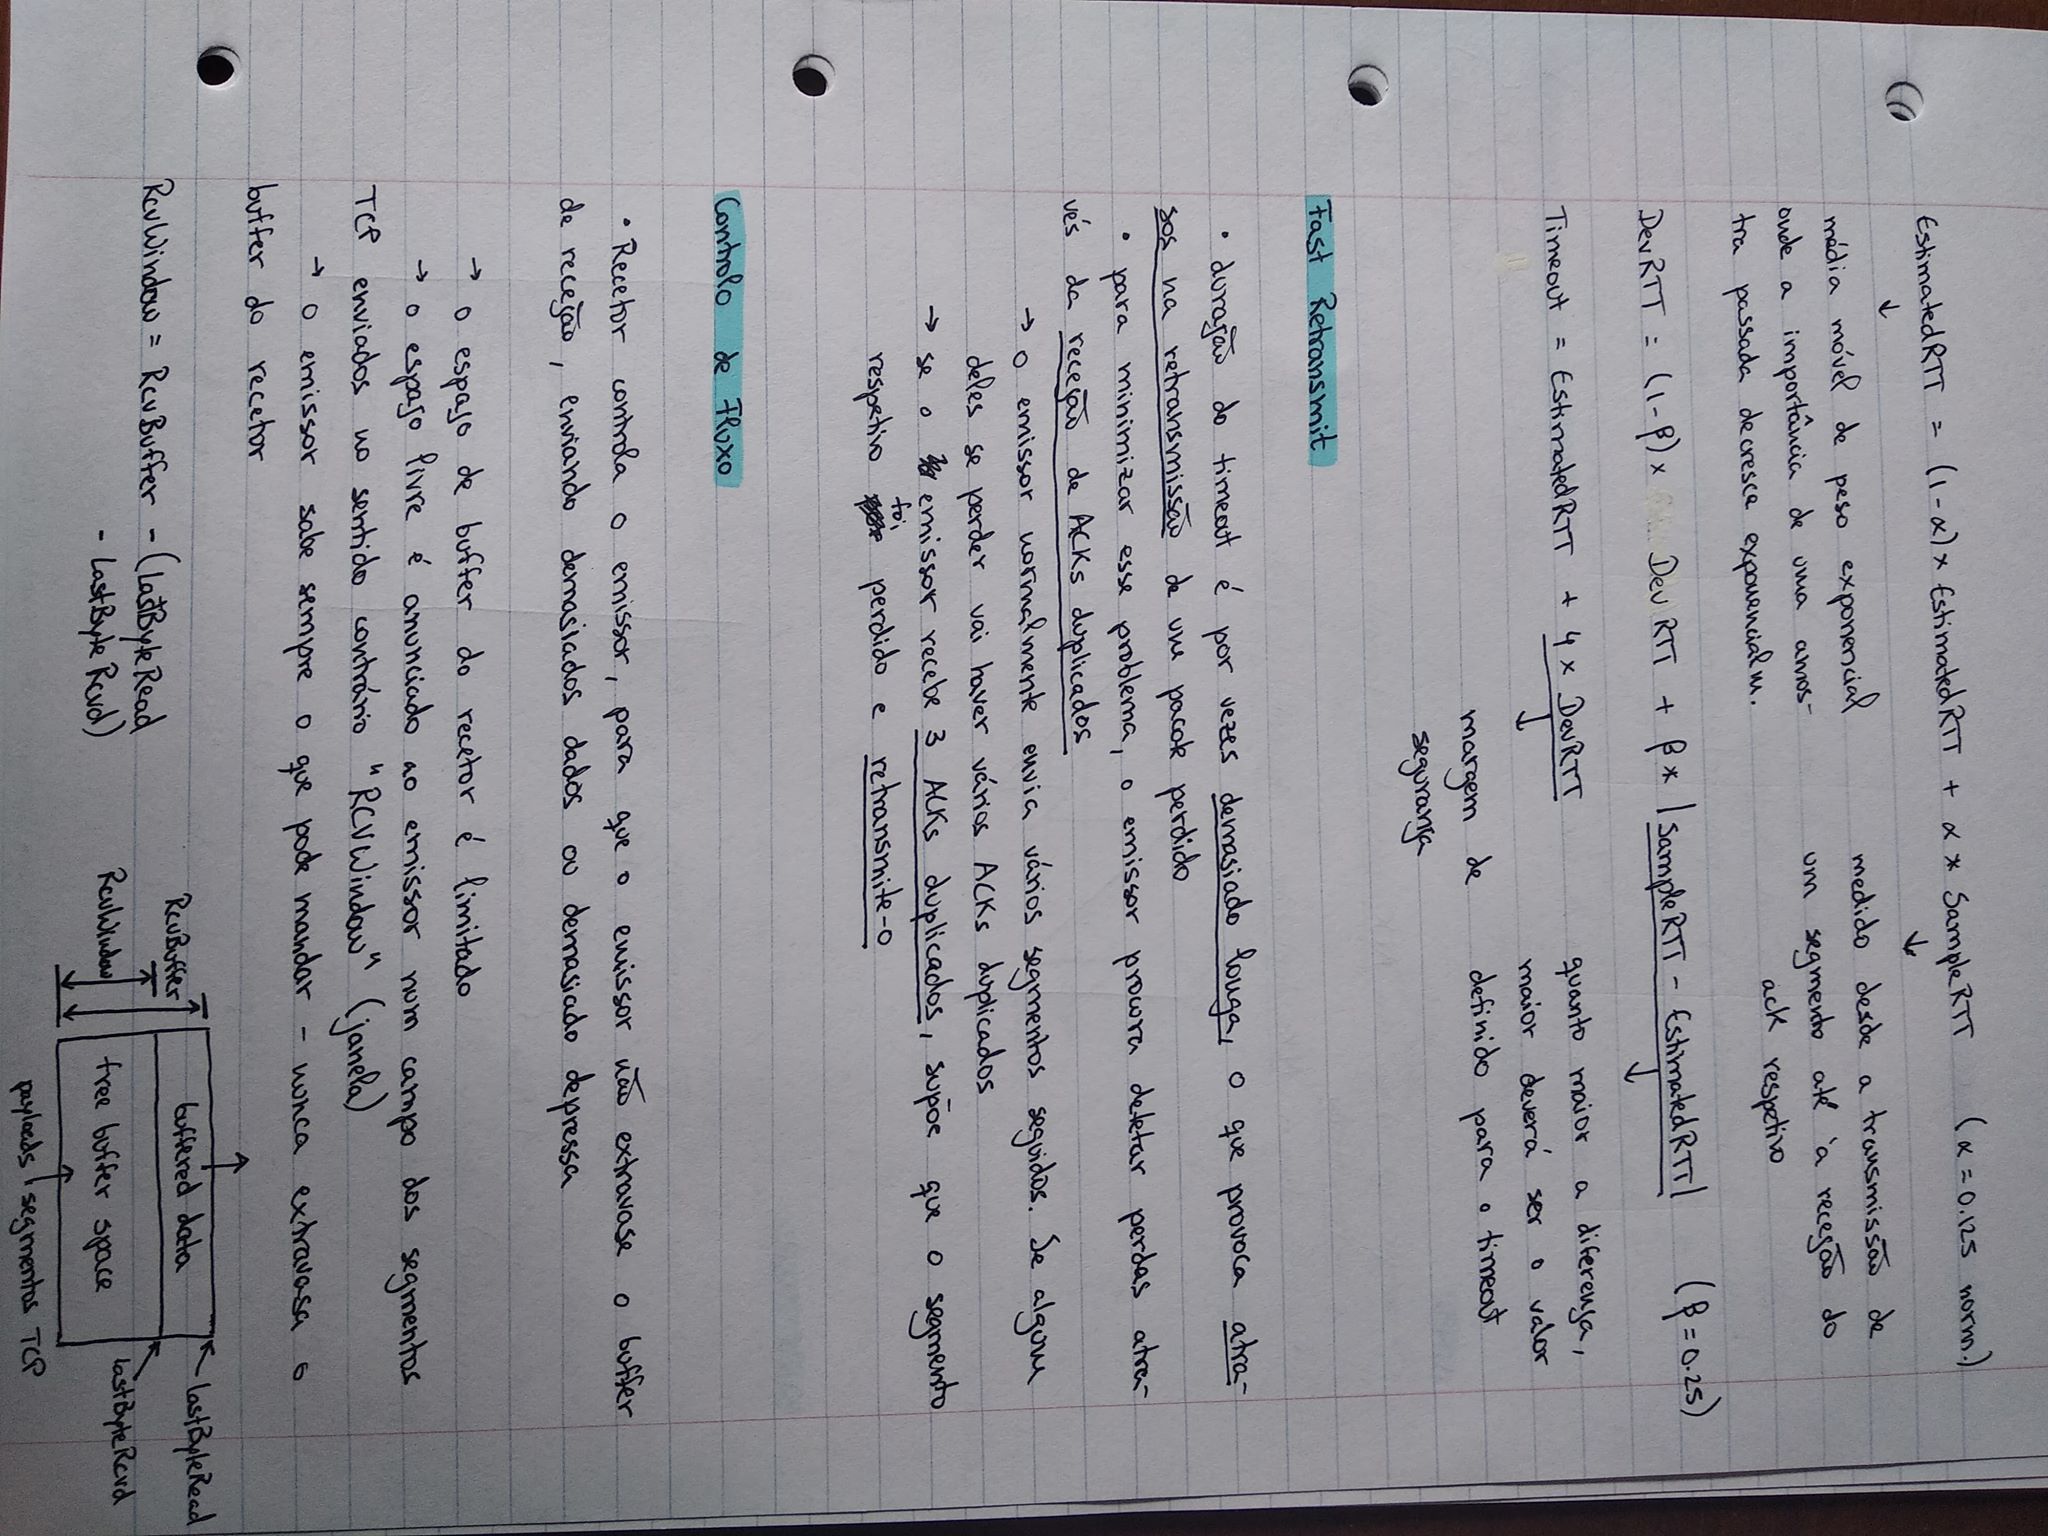 EstimatedRTT = (1-α)× EstimatedRTT + α * SampleRTT (α = 0.125 norm.)
↓ ↓
média móvel de peso exponencial
onde a importância de uma amos-
tra passada decresce exponencialm.
medido desde a transmissão de
um segmento até à receção do
ack respetivo
DevRTT = (1-β)× DevRTT + β * |SampleRTT - EstimatedRTT| (β = 0.25)
↓
Timeout = EstimatedRTT + 4 × DevRTT
↓
margem de
segurança
quanto maior a diferença,
maior deverá ser o valor
definido para o timeout
Fast Retransmit
• duração do timeout é por vezes demasiado longa, o que provoca atra-
sos na retransmissão de um pacote perdido
• para minimizar esse problema, o emissor procura detetar perdas atra-
vés da receção de ACKs duplicados
→ o emissor normalmente envia vários segmentos seguidos. Se algum
deles se perder vai haver vários ACKs duplicados
→ se o emissor recebe 3 ACKs duplicados, supõe que o segmento
respetivo foi perdido e retransmite-o
Controlo de Fluxo
• Recetor controla o emissor, para que o emissor não extravase o buffer
de receção, enviando demasiados dados ou demasiado depressa
→ o espaço de buffer do recetor é limitado
→ o espaço livre é anunciado ao emissor num campo dos segmentos
TCP enviados no sentido contrário "RCVWindow" (janela)
→ o emissor sabe sempre o que pode mandar - nunca extravasa o
buffer do recetor
RcvWindow = RcvBuffer - (LastByteRead
- LastByteRcvd)
RcvBuffer
RcvWindow
buffered data
free buffer space
LastByteRead
LastByteRcvd
payloads segmentos TCP